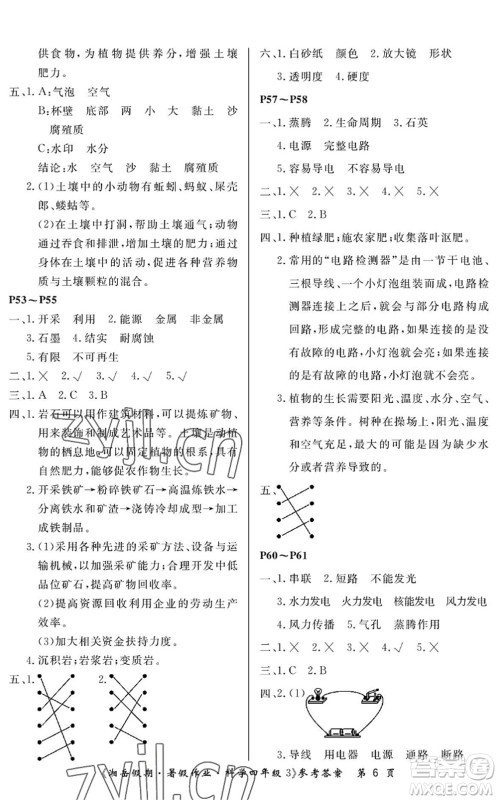 供食物，为植物提供养分，增强土壤
肥力。
五、1. A：气泡　空气
B：杯壁　底部　两　小　黏土　大　沙
腐殖质
C：水印　水分
结论：水　空气　沙　黏土　腐殖质
2. (1)土壤中的小动物有蚯蚓、蚂蚁、屎壳
郎、蝼蛄等。
(2)在土壤中打洞，帮助土壤通气；动物
通过吞食和排泄，将小动物自身的营养
成分混合到土壤中；小动物通过自身
身体的运动
与土壤颗粒的混合。
P53～P55
一、1. 开采　利用　2. 能源　金属　非金属
3. 石墨　4. 结实　耐腐蚀
5. 有限　不可再生
二、1. ×　2. √　3. √　4. √
三、1. A　2. C　3. B
四、1. 岩石可以用作建筑材料，可以提炼矿物、
用来装饰和制成艺术品等。土壤是动植
物的栖息地，可以固定植物的根系，具有
自然肥力，能够促农作物生长。
2. 开采铁矿→粉碎铁矿石→高温炼铁水→
分离铁水和矿渣→浇铸冷却成铁块→加
工成铁制品。
3. (1)采用各种先进的采矿方法、设备与运
输机械，一次开采贫矿、富矿，不丢弃低
品位矿石，提高矿产资源利用率。
(2)提高资源回收利用企业的劳动生产
效率。
(3)加大相关资金扶持力度。
4. 沉积岩；岩浆岩；变质岩。
五、1.　2.
六、1. 白砂纸　颜色　2. 放大镜　形状
3. 透明度　4. 硬度
P57～P58
一、1. 蒸腾　2. 生命周期　3. 石英
4. 电源　完整电路
5. 容易导电　不容易导电
二、1. ×　2. ×　3. √　4. ×　5. ×
三、1. C　2. B
四、1. 种植绿肥；施农家肥；收集落叶沤肥。
2. 常用的“电路检测器”由一节干电池、
三根导线、一个小灯泡组装而成，电路检
测器的两个检测头与部分电路连接时，
如果是完整的电路，小灯泡就会亮；如果
是有故障的电路，小灯泡就不会亮；没
有故障的电路，小灯泡就会亮。
3. 植物的生长需要阳光、温度、水分、空气、
营养等条件。树种在操场上，阳光、温度
和空气充足，造成小树苗枯萎可能是水分
或者营养导致的。
五、
P60～P61
一、1. 串联　2. 短路　不能发光
3. 水力发电　火力发电　核能发电　风力发电
4. 风力发电　5. 气孔　蒸腾
二、1. ×　2. ×　3. ×　4. √
三、1. C　2. B
四、2. (1)
3. 导线　用电器　电源　通路　断路
《湘岳假期·暑假作业·科学四年级3》参考答案　第 6 页